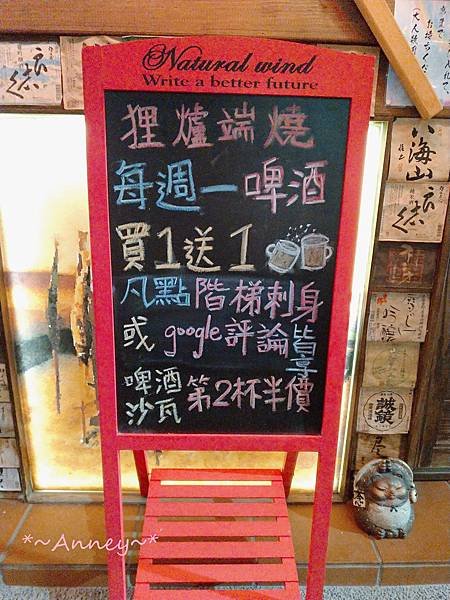 Natural wind
Write a better future
狸爐端燒
每週一啤酒
買1送1
凡點階梯刺身
或google評論皆享
啤酒
沙瓦
第2杯半價
八海山
誠鏡
*~Anney~*